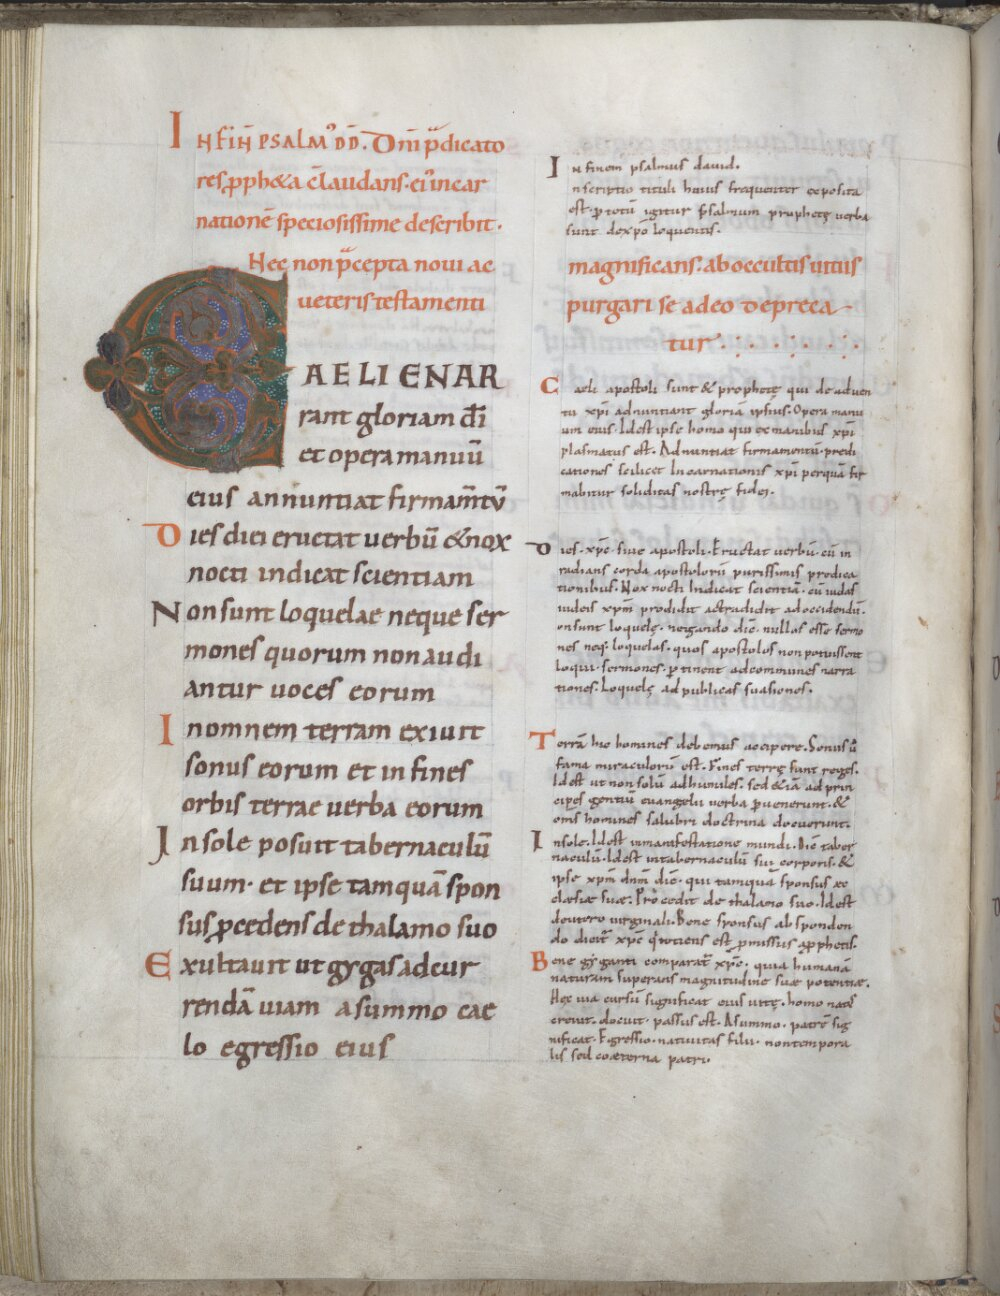 IN FIÑ PSALMꝰ DD̄. Om̄ p̄dicato
res ꝓph&a c̄laudans. eiꝰ incar
natione speciosissime describit.
Hec non p̄cepta noui ac
ueteris testamenti
CAELI ENAR
rant gloriam dī
et opera manuū
eius annuntiat firmam̄tū
Dies diei eructat uerbū & nox
nocti indicat scientiam
Non sunt loquelae neque ser
mones quorum non audi
antur uoces eorum
In omnem terram exiuit
sonus eorum et in fines
orbis terrae uerba eorum
In sole posuit tabernaculū
suum. et ipse tamquā spon
sus ꝓcedens de thalamo suo
Exultauit ut gygas ad cur
rendā uiam a summo cae
lo egressio eius
In finem psalmus dauid.
nscriptio tituli huius frequenter exposita
est. ꝑ totū igitur psalmum prophetę uerba
sunt de xp̄o loquentis.
magnificans. ab occultis uitiis
purgari se a deo depreca
tur
Caeli apostoli sunt & prophetę qui de aduen
tu xp̄i adnuntiant gloriā ipsius. Opera manu
um eius. Idest ipse homo qui ex manibus xp̄i
plasmatus est. Adnuntiat firmamentū. predi
cationes scilicet Incarnationis xp̄i per quā fir
mabitur soliditas nostrę fidei.
Dies. xp̄c. siue apostoli. Eructat uerbū. cū in
radians corda apostolorū purissimis predica
tionibus. Nox nocti Indicat scientiā. cū iudas
iudeis xp̄m prodidit ac tradidit ad occidendū.
on sunt loquelę. negando dic̄. nullos esse sermo
nes neq; loquelas. quos apostolos non potuissent
loqui. sermones. ꝑtinent ad communes narra
tiones. Loquelę ad publicas suasiones.
Terrā hic homines debemus accipere. Sonus ū
fama miraculorū est. Fines terrę sunt reges.
Idest ut non solū ad humiles. sed & iā ad prin
cipes gentiū euangelii uerba ꝑuenerunt. &
om̄s homines salubri doctrina docuerunt.
In sole. Idest in manifestatione mundi. Dic̄ taber
naculū. Idest in tabernaculū sui corporis. &
ipse xp̄m dn̄m dic̄. qui tamquā sponsus ec
clesiae suae. Procedit de thalamo suo. Idest
de utero uirginali. Bene sponsus ab sponden
do dicit̄ xp̄c quotiens est ꝓmissus a ꝓphetis.
Bene gyganti comparat̄ xp̄c. quia humanā
naturam superauit magnitudine suae potentiae.
Hęc uia cursū significat eius uitę. homo natꝰ
creuit. docuit. passus est. A summo. patrē sig
nificat. Egressio. natiuitas filii. non tempora
lis sed coaeterna patri.